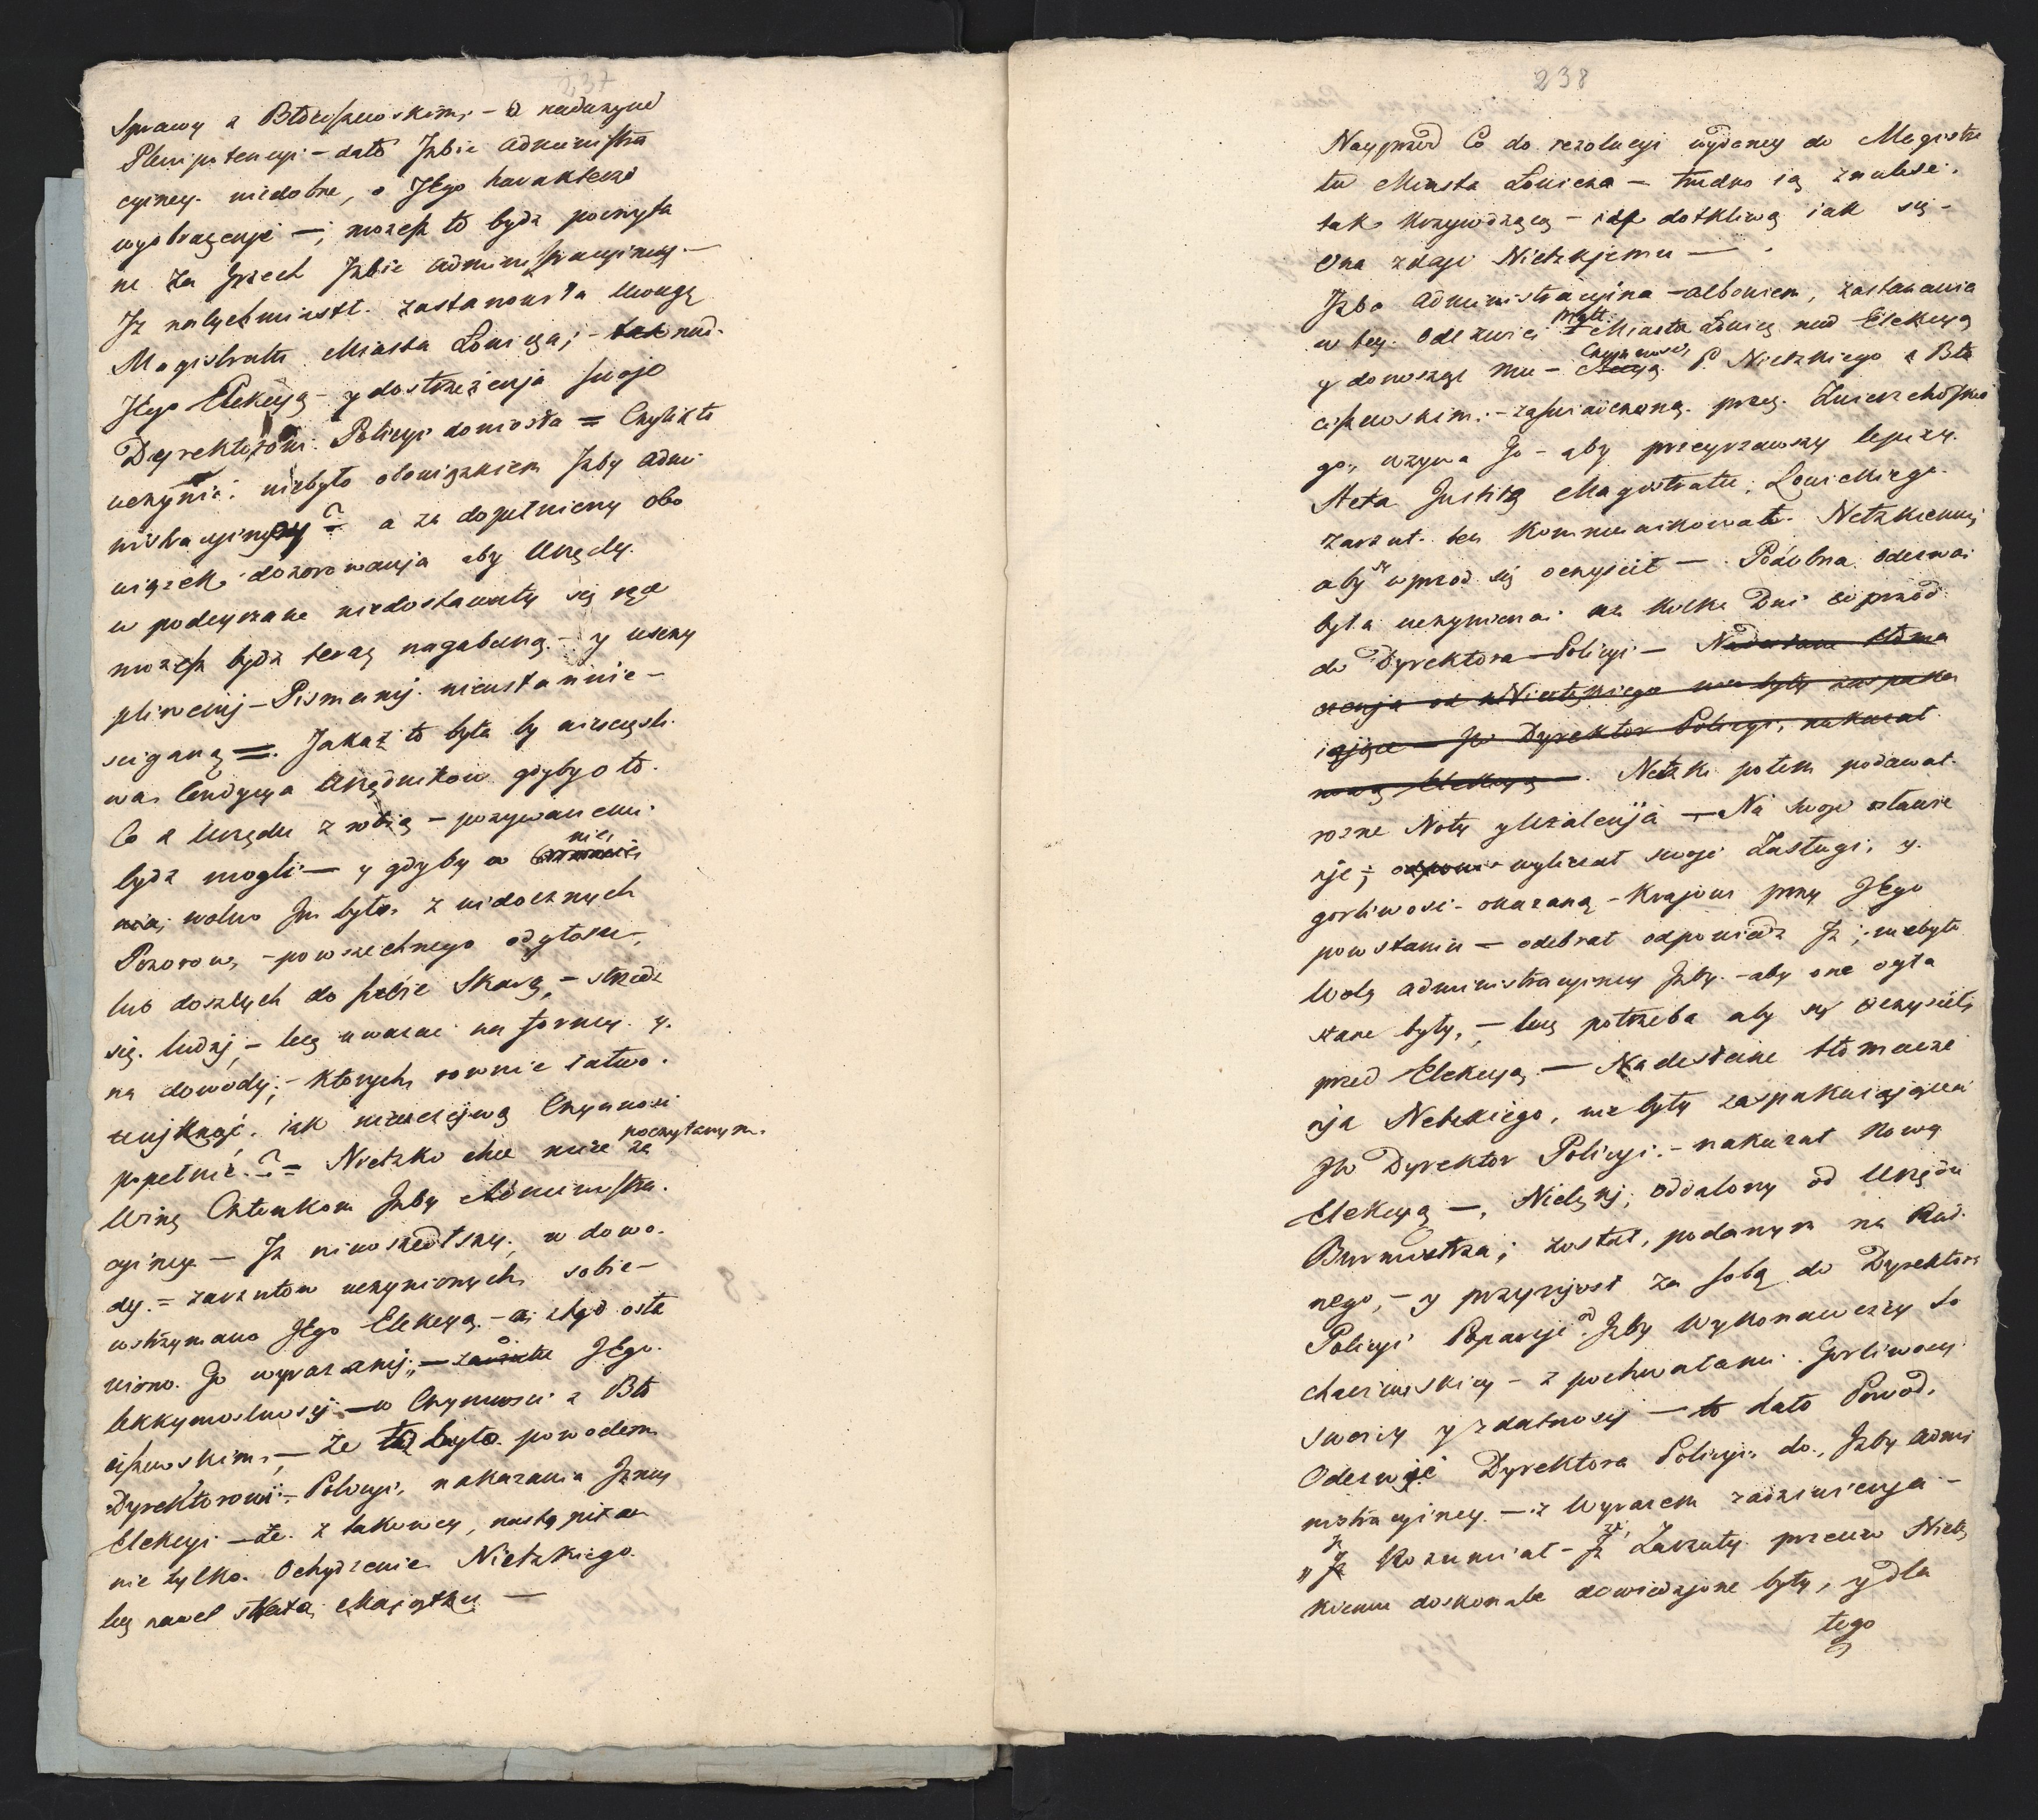 237
Sprawy z Błociszewskim, – z nadużyć
Plenipotencyi – dało Jzbie Administra
cyiney. niedobre, o JEgoharakterze
wyobrażenje –; możesz to bydz poczyta
ne za grzech Jzbie Administracyiney. –
Jz natychmiast. zastanowiła Uwagę
Magistratu Miasta Łowicza; – nad.
JEgo Elekcyą – y dostrzeżenja swoje
Dyrektorowi. Policyi doniosła = Czyliż to
uczynić. niebyło obowiązkiem Jzby Admi
nistracyiney? = a za dopełnieny obo
wiązek dozorowanja aby Urzędy.
w podeyrzane niedostawały się ręce
możesz bydz teraz nagabuną. – y uszczy
pliwemj – Pismamj. nieustannie –
sciganą =. Jakaż to była by nieszczęsli
wa Condycya Urzędnikow gdyby o to.
Co z Urzędu zrobią – pozywanemi.
bydz mogli – y gdyby w
nie,
wolno Jm było, z widocznych
Pozorow, – powszechnego odgłosu –,
lub doszłych do siebie Skarg, – strzedz
się. ludzj, – lecz uważać na formy. y.
na dowody; – ktorych, rownie łatwo.
uniknąć. iak nieuczciwą Czynnosi
popełnić.? = Nietzko chce miec za
poczytanym.
Winę Członkom Jzby Administra.
cyiney – Jz niwoszedłszy. w dowo.
dy. = zarzutow uczynionych, sobie –
wstrzymano JEgo Elekcyą. – a ztąd osła
wiono. Go wyrazamj; – JEgo.
lekkomyslnosci – w Czynnosci z Bło
ciszewskim, – że to było. powodem
Dyrektorowi. – Policyi, nakazania Jnney
Elekcyi – że. z takowey, nastąpiła
nie tylko. Ochydzenie Nietzkiego.
lecz nawet strata, Majątku –
238
Nayprzod Co do rezolucyi wydaney do Magistra
tu Miasta Łowicza – trudno ią znalesć.
tak krzywdzącą – i dotkliwą iak się –
Ona zdaje Nietzkjemu – .
Jzba Administracyina – albowiem, zastanawia
w tey. Odezwie Magtt: Miasta Łowicz nad Elekcyą
y donosząc mu – Czynnosć, P. Nietzkiego z Bło
ciszewskim: – zaswiadczoną. przez. Zwierzchośkie
go, wzywa Go – aby przeyrzawszy lepiey.
Akta Justitz Magistratu, Łowickiego.
zarzut. ten kommunikował. Netzkiemu;
aby się wprzod się oczyscił – . Podobna Odezwa
była uczyniona: na kilka Dni wprzod
do Dyrektora – Policyi – Nadesłane tłoma
czenja od Nietzkiego nie były zaspaka
iające – JW Dyrektor Policyi, nakazał
nową Elekcyą – . Netzki potem podawał.
rożne Noty y Użalenija – . Na swoje osławie
nje; wyliczał swoje Zasługi, y.
gorliwosi – okazaną – Krajowi przy JEgo
powstaniu – odebrał odpowiedz Jz, niebyło
Wolą Administracyiney Jzby. – aby one czyta
stane były, – lecz potrzeba aby się oczyscił,
przed Elekcyą – Nadesłane tłomacze
nja Netzkiego, nie były zaspakaiającem
JW Dyrektor Policyi. – nakazał Nową
Elekcyą –, Nietzkj, oddalony od Urzędu
Burmistrza; został, podanym na Rad.
nego, – y przynjosł za sobą do Dyrektora
Policyi Poparcje od Jzby Wykonawczey So
chaczewskiey – z pochwałami. Gorliwosci
swoiey y zdatnosci – to dało Powod.
Odezwie Dyrektora Policyi. do, Jzby Admi
nistracyiney. – z Wyrazem zadziwienja –
„ Jż Rozumiał – że, Zarzuty przeciw Nietz
kiemu doskonale dowiedzjone były, y dla
tego